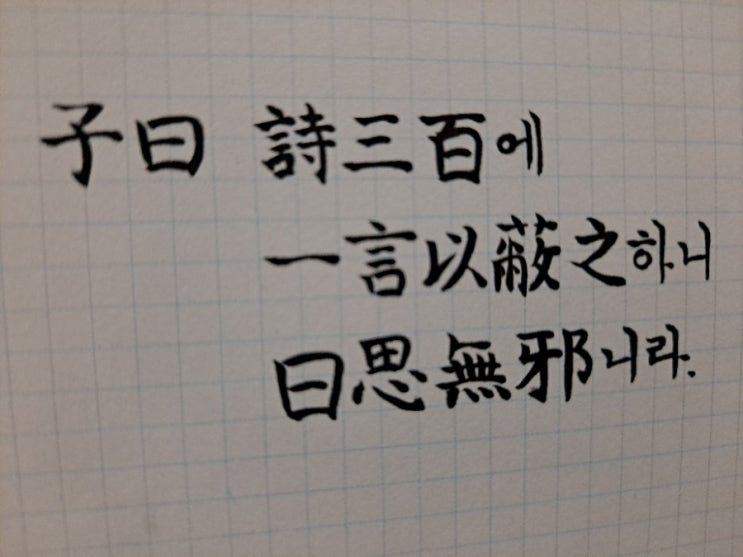 子曰 詩三百에
一言以蔽之하니
曰思無邪니라.